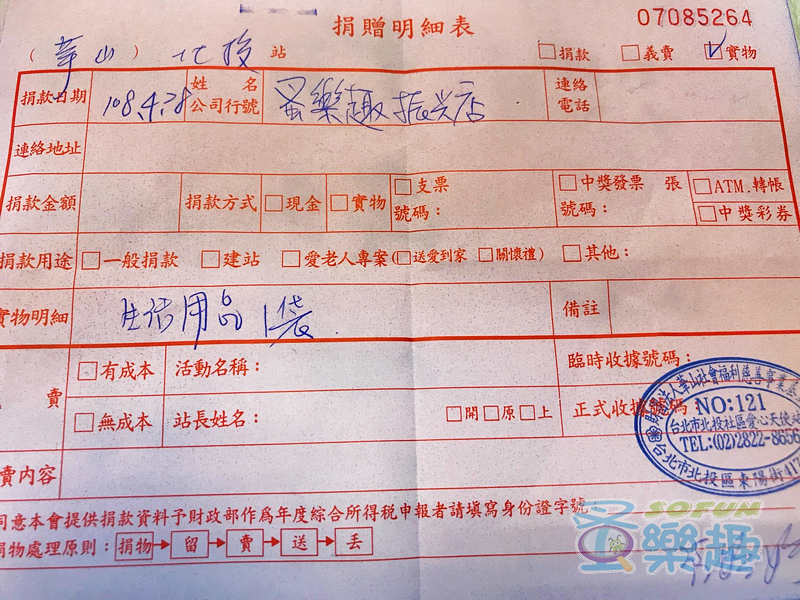 捐贈明細表
07085264
(華山) 北投 站
□捐款 □義賣 ☑實物
捐款日期 108.4.28 姓名 公司行號 蚤樂趣振興店 連絡電話
連絡地址
捐款金額 捐款方式 □現金 □實物 □支票 號碼： □中獎發票 張 號碼： □ATM.轉帳 □中獎彩券
捐款用途 □一般捐款 □建站 □愛老人專案(□送愛到家 □關懷禮) □其他：
實物明細 生活用品1袋 備註
賣 □有成本 活動名稱： 臨時收據號碼：
□無成本 站長姓名： □開□原□上 正式收據號碼
賣內容
同意本會提供捐款資料予財政部作為年度綜合所得稅申報者請填寫身份證字號
捐物處理原則：捐物→留→賣→送→丟
財團法人華山社會福利慈善事業基
NO:121
台北市北投社區愛心天使站
TEL:(02)2822-8656
台北市北投區東陽街417
SOFUN
蚤樂趣